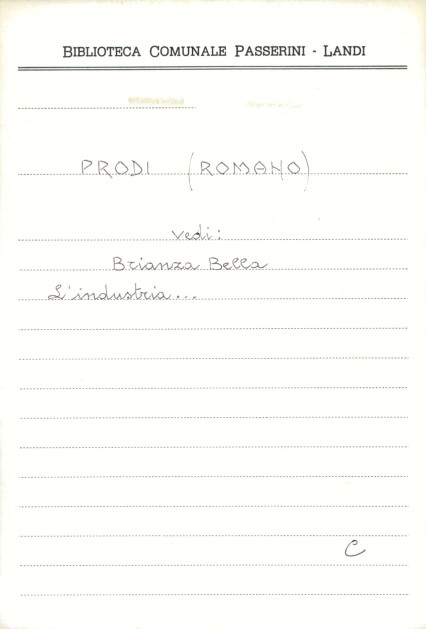 BIBLIOTECA COMUNALE PASSERINI - LANDI
PRODI (ROMANO)
vedi:
Brianza Bella
L'industria...
C